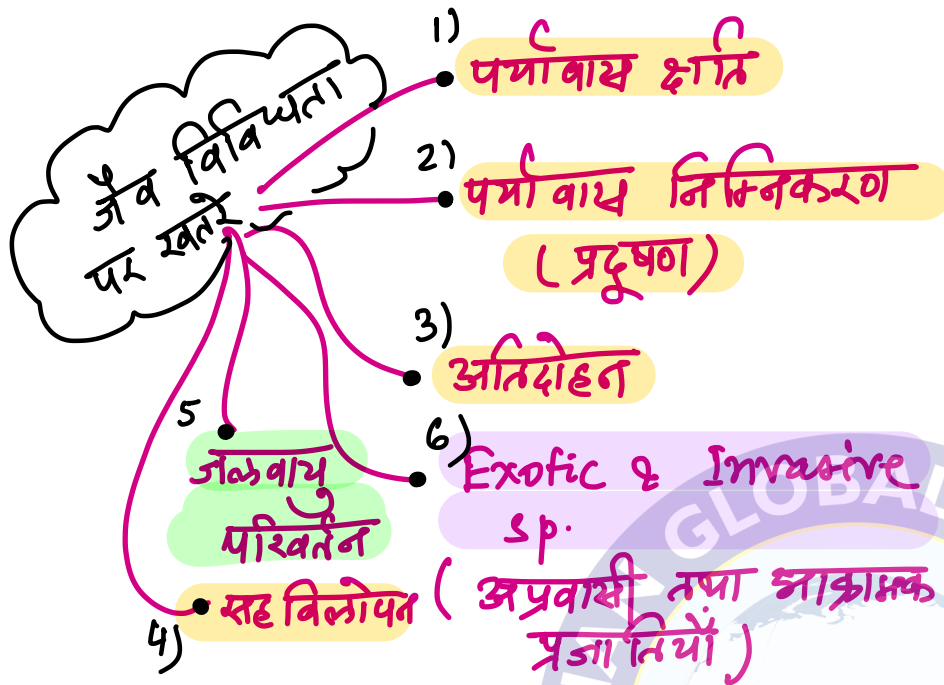 जैव विविधता
पर खतरे
1) पर्यावास क्षति
2) पर्यावास निम्निकरण
(प्रदूषण)
3) अतिदोहन
4) सह विलोपन
5 जलवायु
परिवर्तन
6) Exotic & Invasive
sp.
(अप्रवासी तथा आक्रामक
प्रजातियाँ)
GLOBAL